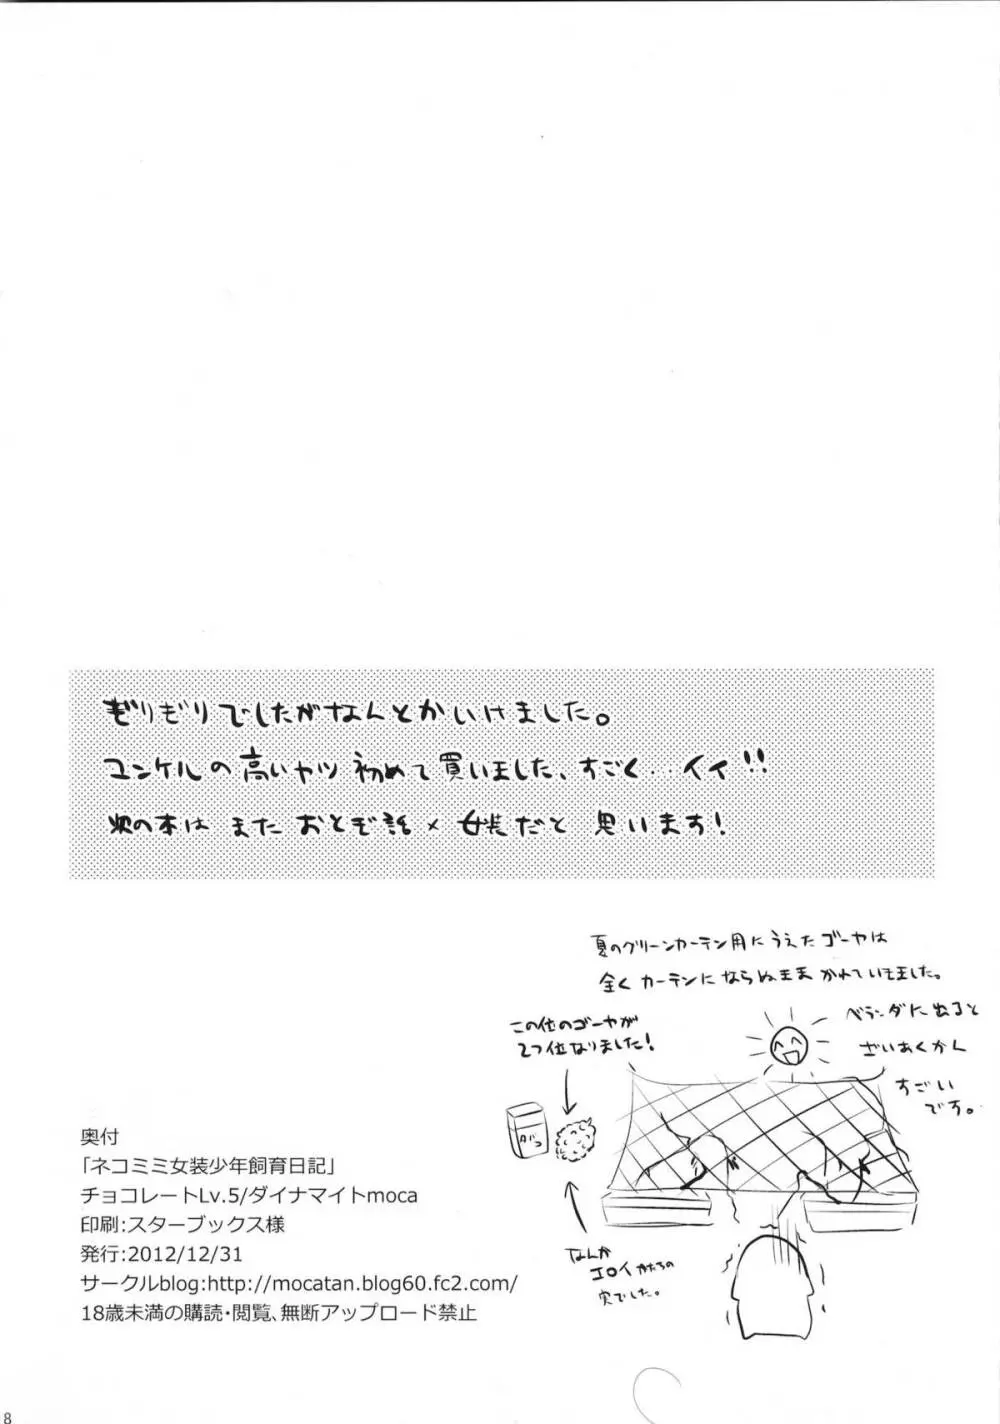 ぎりぎりでしたがなんとかいけました。
ユンケルの高いヤツ 初めて買いました、すごく…イイ!!
次の本は また おとぎ話×女装だと 思います!
夏のグリーンカーテン用にうえたゴーヤは
全くカーテンにならぬまま かれていきました。
この位のゴーヤが
2つ位なりました!
ベランダに出ると
ざいあくかん
すごい
です。
タバコ
なんか
エロイかたちの
実でした。
奥付
「ネコミミ女装少年飼育日記」
チョコレートLv.5/ダイナマイトmoca
印刷:スターブックス様
発行:2012/12/31
サークルblog:http://mocatan.blog60.fc2.com/
18歳未満の購読・閲覧、無断アップロード禁止
8